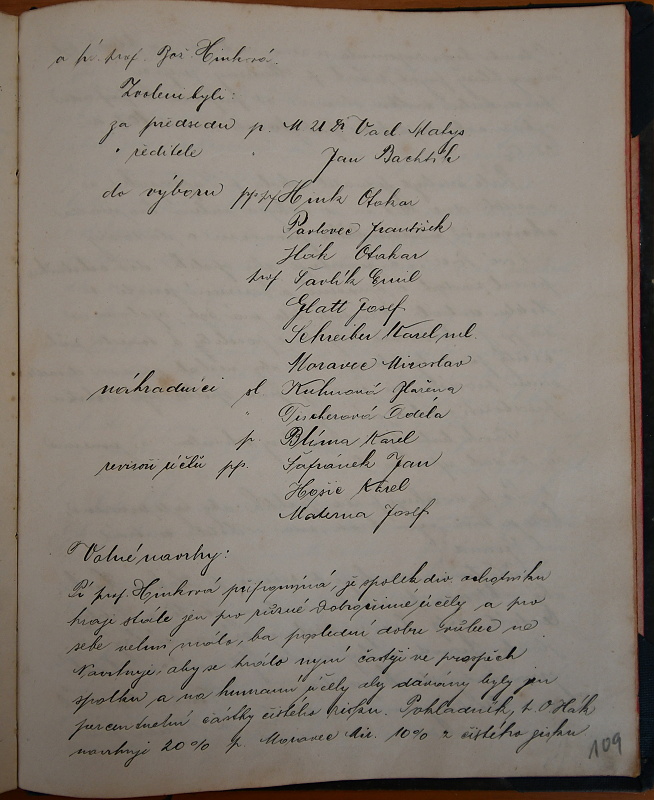 a pí. prof. Bož. Hinková.
Zvoleni byli:
za předsedu p. MUDr Vacl Matys
" ředitele " Jan Bachtík
do výboru pp. Hink Otakar
Pavlovec František
Hák Otakar
prof Pavlík Emil
Glatt Josef
Schreiber Karel ml.
Moravec Miroslav
náhradníci sl. Kuhnová Mařena
" Fischerová Adéla
p. Blíma Karel
revisoři účtů pp. Šafránek Jan
Hošic Karel
Materna Josef
Volné návrhy:
Pí prof. Hinková připomíná, že spolek div. ochotníků
hraje stále jen pro různé dobročinné účely a pro
sebe velmi málo, ba poslední dobou vůbec ne.
Navrhuje, aby se hrálo nyní častěji ve prospěch
spolku a na humanní účely aby dávány byly jen
percentuelní částky čistého zisku. Pokladník, p. O. Hák
navrhuje 20% p. Moravec Mir. 10% z čistého zisku.
109